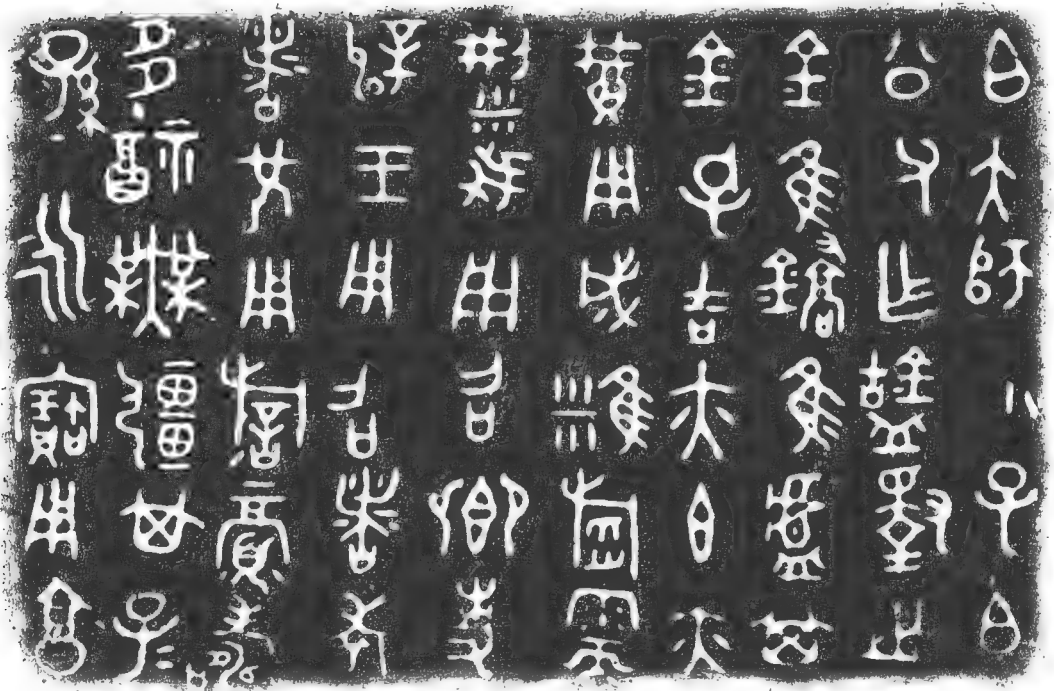 白大師小子白
公父乍𠤳擇之
金隹鐈隹盧其
金孔吉亦玄亦
黃用成糕稻需
粱我用召卿事
辟王用召者考
者兄用旂眉壽
多福無疆其子
孫永寶用亯